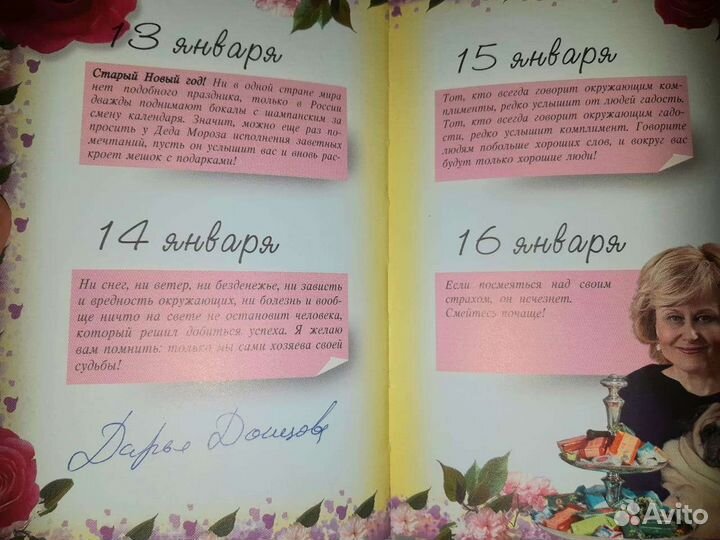 13 января
Старый Новый год! Ни в одной стране мира
нет подобного праздника, только в России
дважды поднимают бокалы с шампанским за
смену календаря. Значит, можно еще раз по-
просить у Деда Мороза исполнения заветных
мечтаний, пусть он услышит вас и вновь рас-
кроет мешок с подарками!
14 января
Ни снег, ни ветер, ни безденежье, ни зависть
и вредность окружающих, ни болезнь и вооб-
ще ничто на свете не остановит человека,
который решил добиться успеха. Я желаю
вам помнить: только мы сами хозяева своей
судьбы!
Дарья Донцова
15 января
Тот, кто всегда говорит окружающим ком-
плименты, редко услышит от людей гадость.
Тот, кто всегда говорит окружающим гадо-
сти, редко услышит комплимент. Говорите
людям побольше хороших слов, и вокруг вас
будут только хорошие люди!
16 января
Если посмеяться над своим
страхом, он исчезнет.
Смейтесь почаще!
Avito